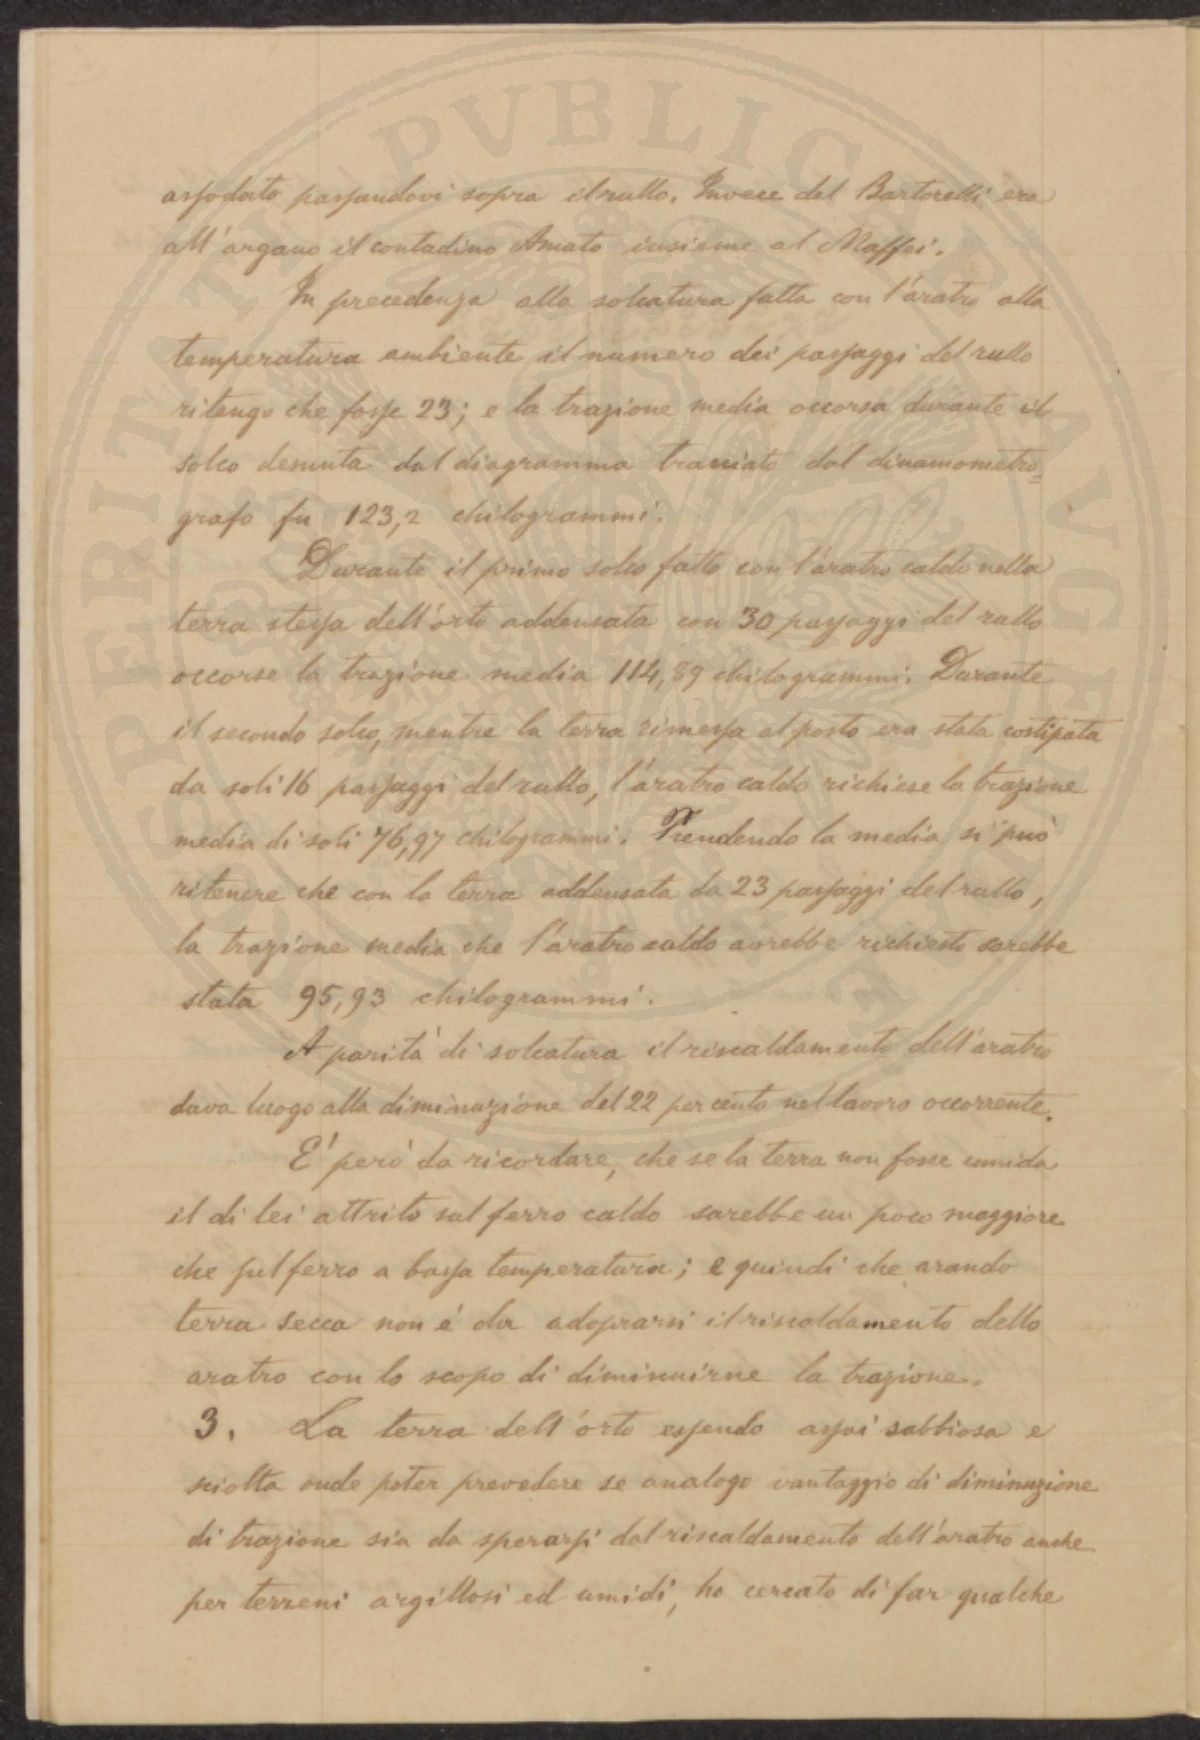 assodato passandovi sopra il rullo. Invece del Bartorelli era
all'argano il contadino Amato insieme al Maffei.
In precedenza alla solcatura fatta con l'aratro alla
temperatura ambiente il numero dei passaggi del rullo
ritengo che fosse 23; e la trazione media occorsa durante il
solco desunta dal diagramma tracciato dal dinamometro=
grafo fu 123,2 chilogrammi.
Durante il primo solco fatto con l'aratro caldo nella
terra stessa dell'orto addensata con 30 passaggi del rullo
occorse la trazione media 114,89 chilogrammi. Durante
il secondo solco, mentre la terra rimessa al posto era stata costipata
da soli 16 passaggi del rullo, l'aratro caldo richiese la trazione
media di soli 76,97 chilogrammi. Prendendo la media si può
ritenere che con la terra addensata da 23 passaggi del rullo,
la trazione media che l'aratro caldo avrebbe richiesto sarebbe
stata 95,93 chilogrammi.
A parità di solcatura il riscaldamento dell'aratro
dava luogo alla diminuzione del 22 per cento nel lavoro occorrente.
E' però da ricordare, che se la terra non fosse umida
il di lei attrito sul ferro caldo sarebbe un poco maggiore
che sul ferro a bassa temperatura; e quindi che arando
terra secca non è da adoprarsi il riscaldamento dello
aratro con lo scopo di diminuirne la trazione.
3. La terra dell'orto essendo assai sabbiosa e
sciolta onde poter prevedere se analogo vantaggio di diminuzione
di trazione sia da sperarsi dal riscaldamento dell'aratro anche
per terreni argillosi ed umidi, ho cercato di far qualche
PUBLICAE AUGENDAE PROSPERITATI